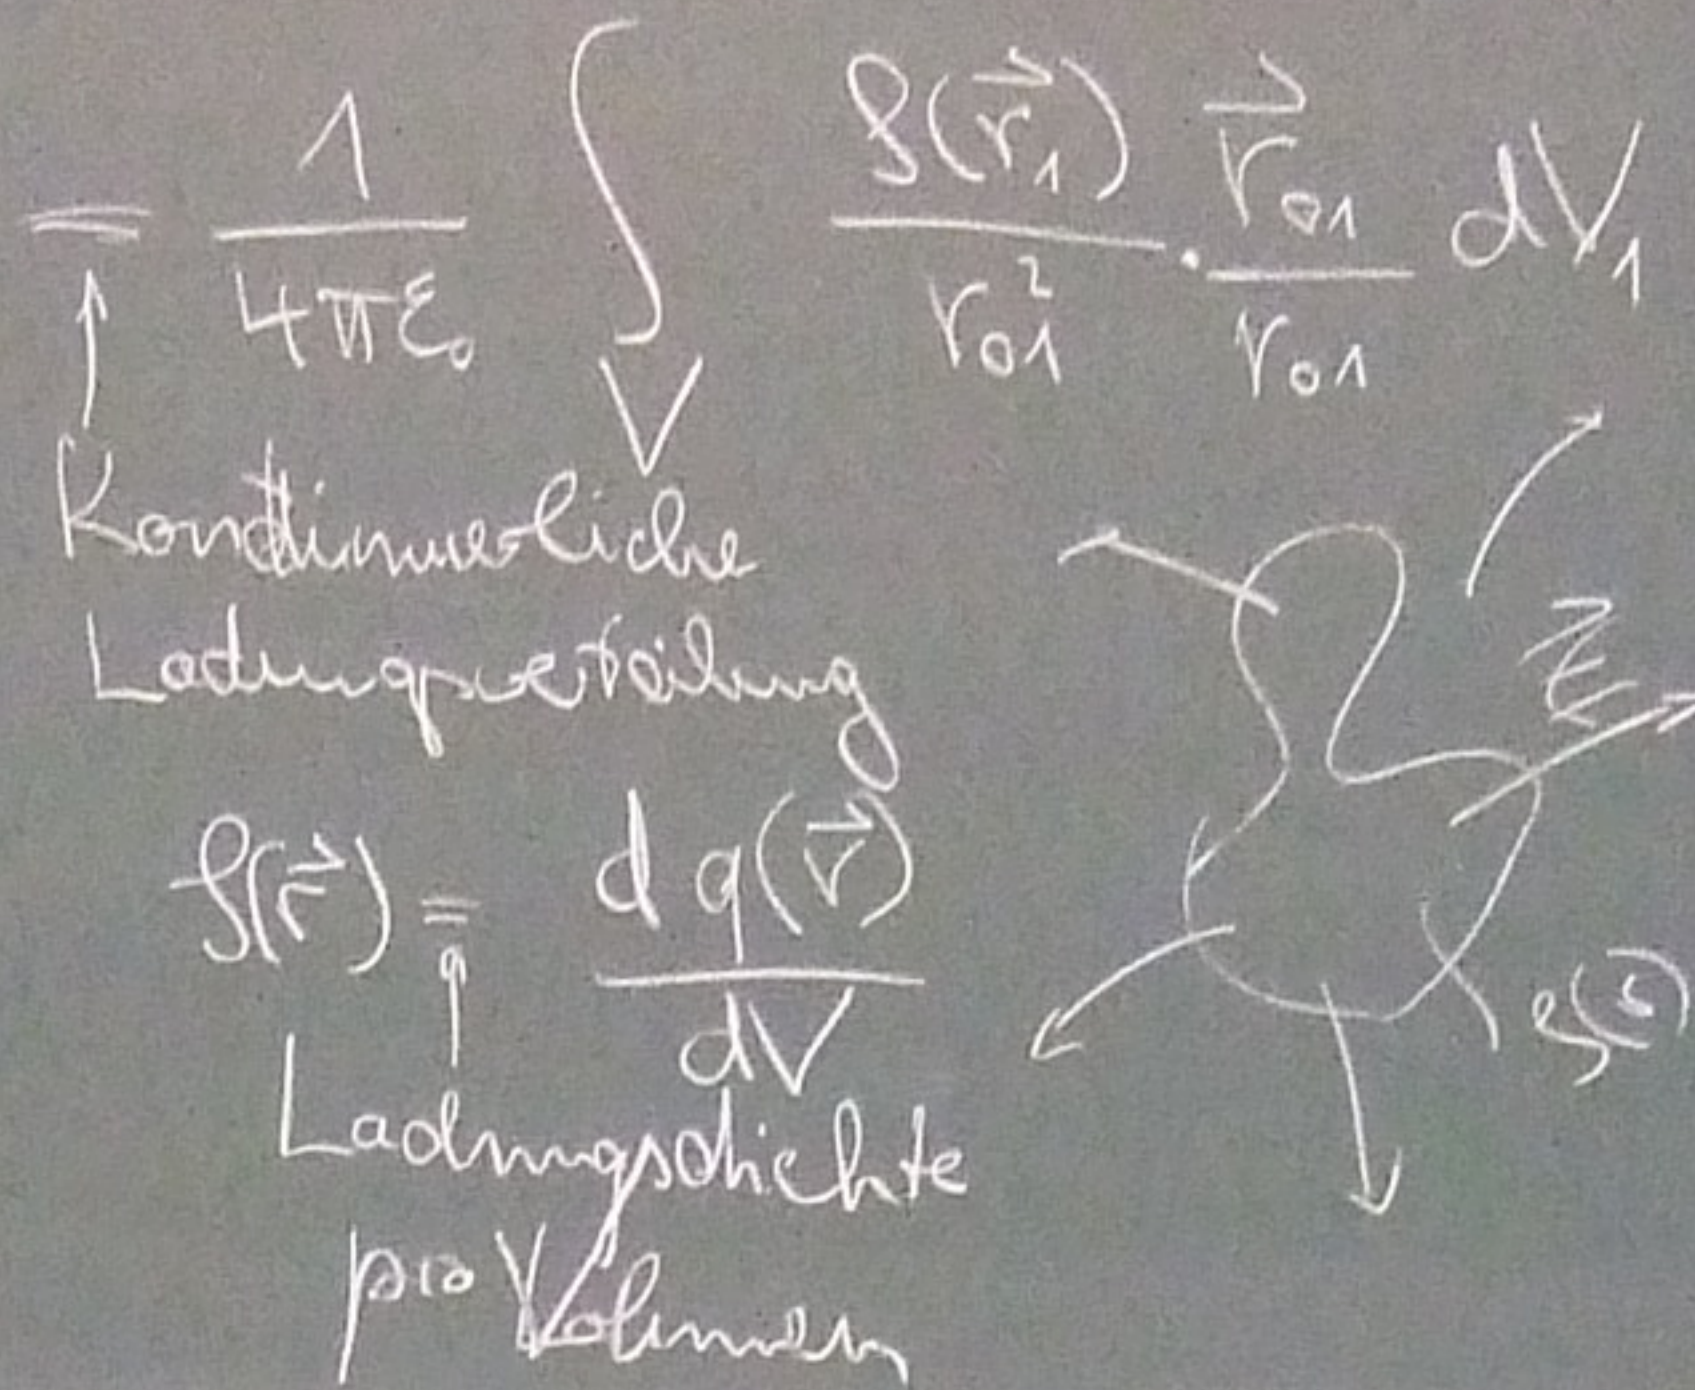 = 1/(4πε₀) ∫_V ρ(r⃗₁)/r₀₁² · r⃗₀₁/r₀₁ dV₁
Kontinuierliche
Ladungsverteilung
E⃗
ρ(r⃗) = dq(r⃗)/dV
ρ(r⃗)
Ladungsdichte
pro Volumen